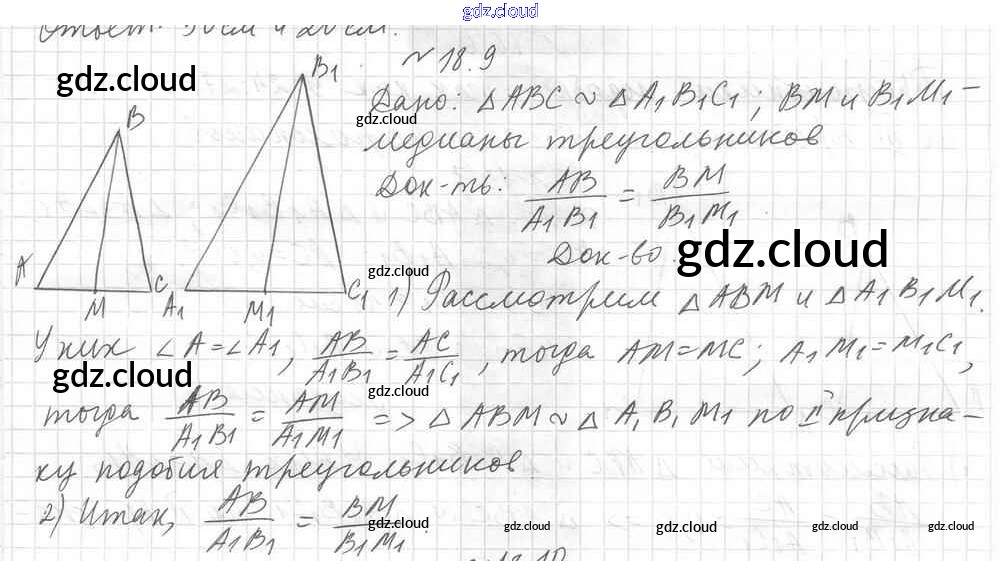 gdz.cloud
Ответ: 30 см и 20 см.
№ 18.9
gdz.cloud
B1
Дано: △ABC ~ △A1B1C1; BM и B1M1 –
gdz.cloud
B
медианы треугольников
Док-ть: AB/A1B1 = BM/B1M1
Док-во.
gdz.cloud
A M C A1 M1 C1
gdz.cloud
1) Рассмотрим △ABM и △A1B1M1.
У них ∠A = ∠A1, AB/A1B1 = AC/A1C1, тогда AM = MC; A1M1 = M1C1,
gdz.cloud
gdz.cloud
тогда AB/A1B1 = AM/A1M1 => △ABM ~ △A1B1M1 по II призна-
ку подобия треугольников
2) Итак, AB/A1B1 = BM/B1M1.
gdz.cloud gdz.cloud gdz.cloud gdz.cloud gdz.cloud
18.10